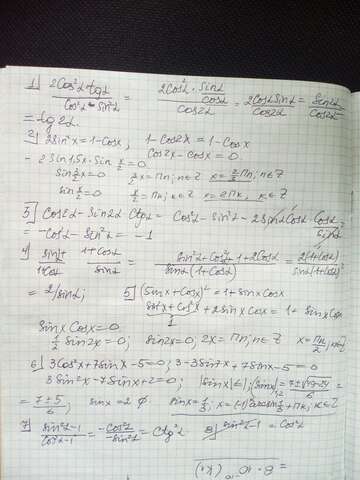 1) 2Cos²α·tgα / Cos²α-Sin²α = 2Cos²α · Sinα/Cosα / Cos2α = 2CosαSinα / Cos2α = Sin2α / Cos2α =
= tg2α.
2) 2Sin²x = 1-Cosx, 1-Cos2x = 1-Cosx
Cos2x-Cosx = 0
- 2Sin1,5x·Sin x/2 = 0
Sin 3/2x = 0 x = 2/3 πn, n∈Z
Sin x/2 = 0 x/2 = πn, n∈Z x = 2πk, k∈Z
3) Cos2α - Sin2α Ctgα = Cos²α - Sin²α - 2SinαCosα · Cosα/Sinα =
= -Cos²α - Sin²α = -1
4) Sinα/1+Cosα + 1+Cosα/Sinα = Sin²α+Cos²α+1+2Cosα / Sinα(1+Cosα) = 2(1+Cosα) / Sinα(1+Cosα) =
= 2/Sinα;
5) (Sinx+Cosx)² = 1+SinxCosx
Sin²x+Cos²x + 2SinxCosx = 1+SinxCosx
1
SinxCosx = 0
1/2 Sin2x = 0; Sin2x = 0; 2x = πn, n∈Z x = πn/2, n∈Z
6) 3Cos²x+7Sinx-5 = 0; 3-3Sin²x+7Sinx-5 = 0
3Sin²x-7Sinx+2 = 0; |Sinx|≤1; (Sinx)1,2 = 7±√49-24 / 6 =
= 7±5 / 6; Sinx = 2 ∅ Sinx = 1/3; x = (-1)ᵏ arcsin 1/3 + πk, k∈Z
7) Sin²α-1 / Cos²α-1 = -Cos²α / -Sin²α = Ctg²α
8) Sin²α-1 = Cos²α